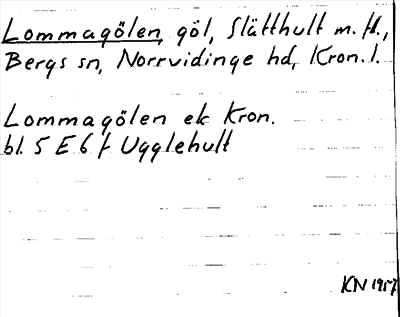 Lommagölen, göl, Slätthult m. fl.,
Bergs sn, Norrvidinge hd, Kron. l.
Lommagölen ek Kron.
bl. 5 E 6 f Ugglehult
KN 1957